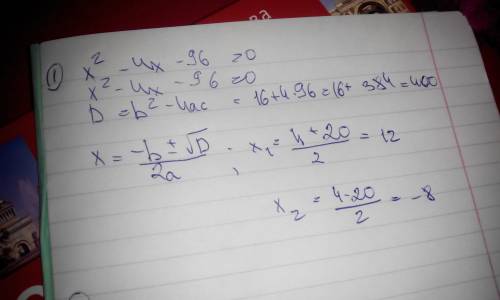 ① x² - 4x - 96 = 0
x² - 4x - 96 = 0
D = b² - 4ac = 16 + 4·96 = 16 + 384 = 400
x = (-b ± √D) / 2a ; x₁ = (4 + 20) / 2 = 12
x₂ = (4 - 20) / 2 = -8